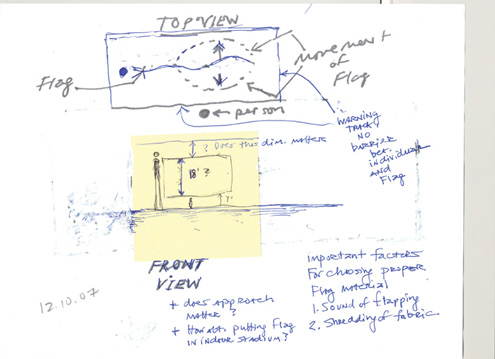 TOP VIEW
Flag
movement
of
Flag
person
WARNING
TRACK?
NO
BARRIER
bet.
individual
AND
Flag
? Does this dim. matter?
18' ?
?'
FRONT
VIEW
12.10.07
+ does approach
matter?
+ How abt. putting Flag
in indoor stadium?
important factors
For choosing proper
Flag material
1. Sound of flapping
2. Shredding of fabric